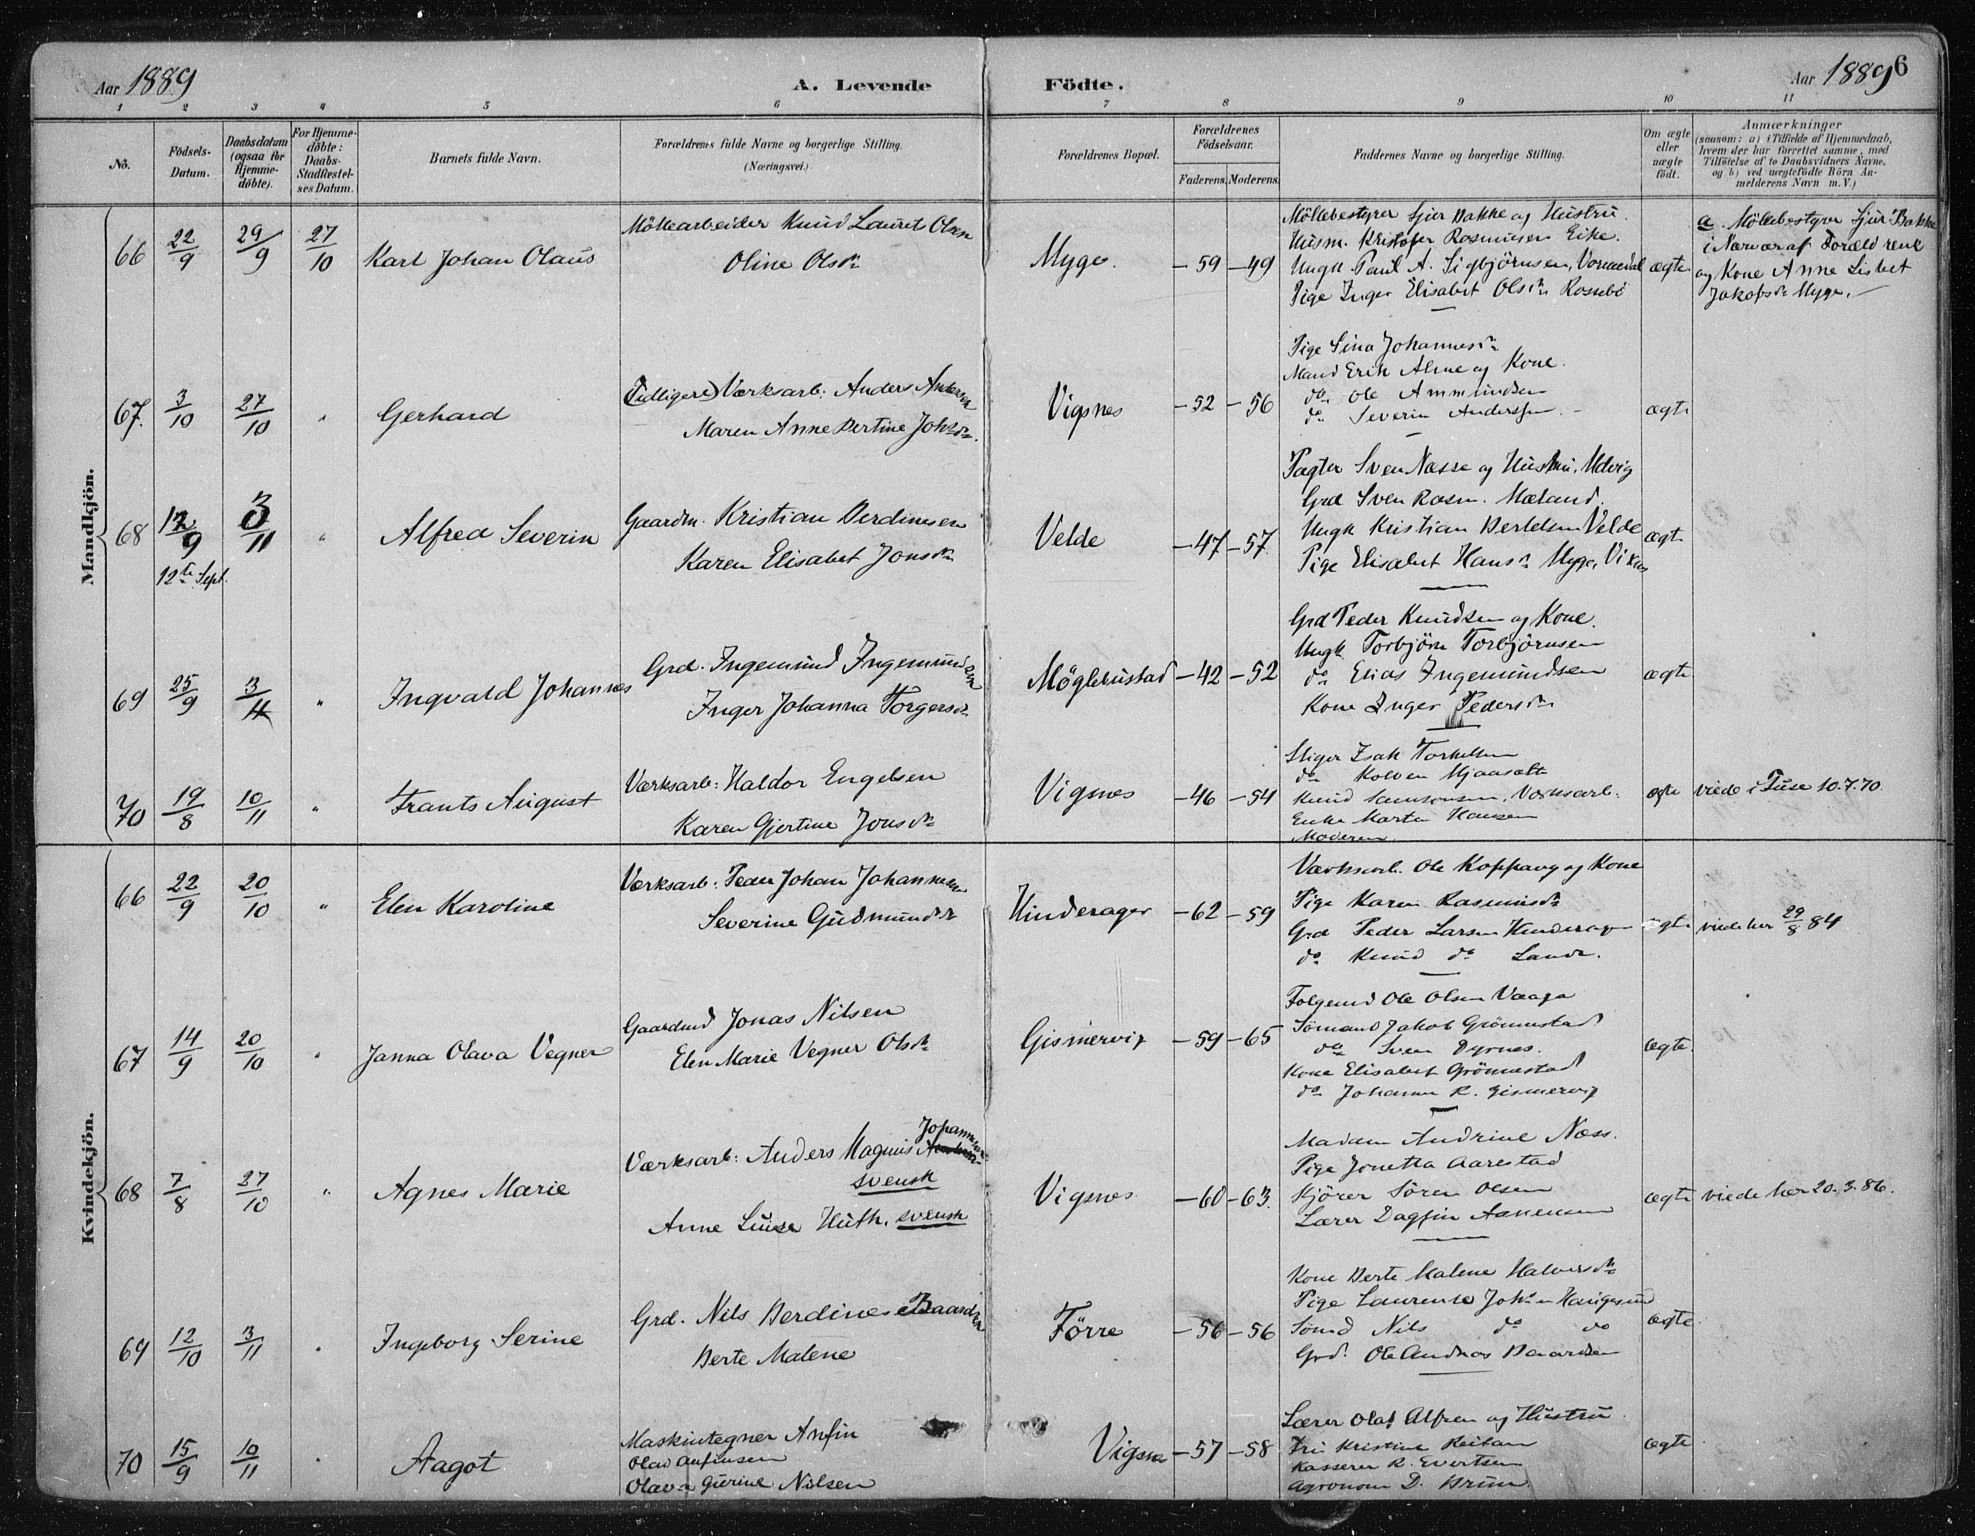 Aar 1889
A. Levende Födte.
Aar 1889
6
1 2 3 4 5 6 7 8 9 10 11
No.
Födsels-Datum.
Daabsdatum (ogsaa for Hjemme-döbte).
For Hjemme-döbte: Daabs-Stadfæstel-ses Datum.
Barnets fulde Navn.
Forældrenes fulde Navne og borgerlige Stilling.
(Næringsvei.)
Forældrenes Bopæl.
Forældrenes Födselsaar.
Faderens. Moderens.
Faddernes Navne og borgerlige Stilling.
Om ægte eller uægte födt.
Anmærkninger
(saasom: a) i Tilfælde af Hjemmedaab,
hvem der har forrettet samme, med
Tilföielse af to Daabsvidners Navne,
og b) ved uægtefödte Börn An-
melderens Navn m. V.)
Mandkjön.
66 22/9 29/9 27/10 Karl Johan Olaus
Möllearbeider Knud Lauret Olsen
Oline Olsdr
Myge. -59 -49
Möllebestyrer Sjur Bakke og Hustru.
Husm. Kristofer Rasmusen Eike.
Ungk Paul A. Sigbjörnsen, Vormedal
Pige Inger Elisabet Olsdr Rossebö
ægte
a. Möllebestyrer Sjur Bakke
i Nærvær af Forældrene
og Kone Anne Lisbet
Jakobsdr Myge.
67. 3/10 27/10 " Gerhard
(Tidligere) Værksarb: Anders Andersen
Maren Anne Bertine Johsdr.
Vigsnes -52 -56
Pige Sina Johannesdr
Mand Erik Alme og Kone.
do. Ole Ammundsen
do Severin Anderssen.
ægte
68 12/9 3/11 " Alfred Severin
12te Sept.
Gaardm. Kristian Berdinesen
Karen Elisabet Jonsdr
Velde -47 -57
Pagter Sven Næsse og Hustru, Udvig
Grd Sven Rasm. Mæland.
Ungk Kristian Bertelsen Velde
Pige Elisabet Hansdr Myge, Viknes
ægte
69 25/9 3/11 " Ingvald Johannes
Grd. Ingemund Ingemundsen
Inger Johanna Torgersdr
Möglebustad -42 -52
Grd Peder Knudsen og Kone.
Ungk Torbjörn Torbjörnsen
do Elias Ingemundsen
Kone Inger Pedersdr
ægte
70 19/8 10/11 " Frants August
Værksarb: Haldor Engelsen
Karen Gjertine Jonsdr
Vigsnes -46 -54
Stiger Isak Torkelsen
do Kolben Mjaasalt
Knud Samsonsen, Værksarb.
Enke Marta Hansen
Moderen.
ægte viede i Suse 10.7.70.
Kvindekjön.
66 22/9 20/10 " Elen Karoline
Værksarb: Peder Johan Johannesen
Severine Gudmundsdr
Hinderager -62 -59
Værksarb. Ole Koppang og Kone
Pige Karen Rasmusdr
Grd Peder Larsen Hinderager
do Knud do Sande.
ægte viede her 29/8 84
67 14/9 20/10 " Janna Olava Vegner
Gaardmd Jonas Nilsen
Elen Marie Vegner Olsdr
Gismervig -59 -65
Folgemd Ole Olsen Vaaga
Sömand Jakob Grönnestad
do Sven Dyrnes.
Kone Elisabet Grönnestad
do Johanna R. Gismervig
ægte.
68 7/8 27/10 " Agnes Marie
Johannesen
Værksarb: Anders Magnus
svensk
Anne Luise Huth, svensk
Vigsnes -60 -63.
Madam Andrine Næss.
Pige Jonetta Aarestad
Kjörer Sören Olsen
Lærer Dagfin Aanensen
ægte viede her 20.3.86.
69 12/10 3/11 " Ingeborg Serine
Grd. Nils Berdinesen Baardsen
Berte Malene
Förre -56 -56
Kone Berte Malene Halvorsdr
Pige Laurense Johsn Haugesund
Sömd Nils do do
Grd. Ole Andreas Baardsen
ægte.
70 15/9 10/11 " Aagot
Maskintegner Anfin
Olav Anfinsen
Olava Gurine Nilsen
Vigsnes -57 -58
Lærer Olaf Alfsen og Hustru.
Fru Kristine Reitan
Kasserer R. Evertsen
Agronom D. Brun.
ægte